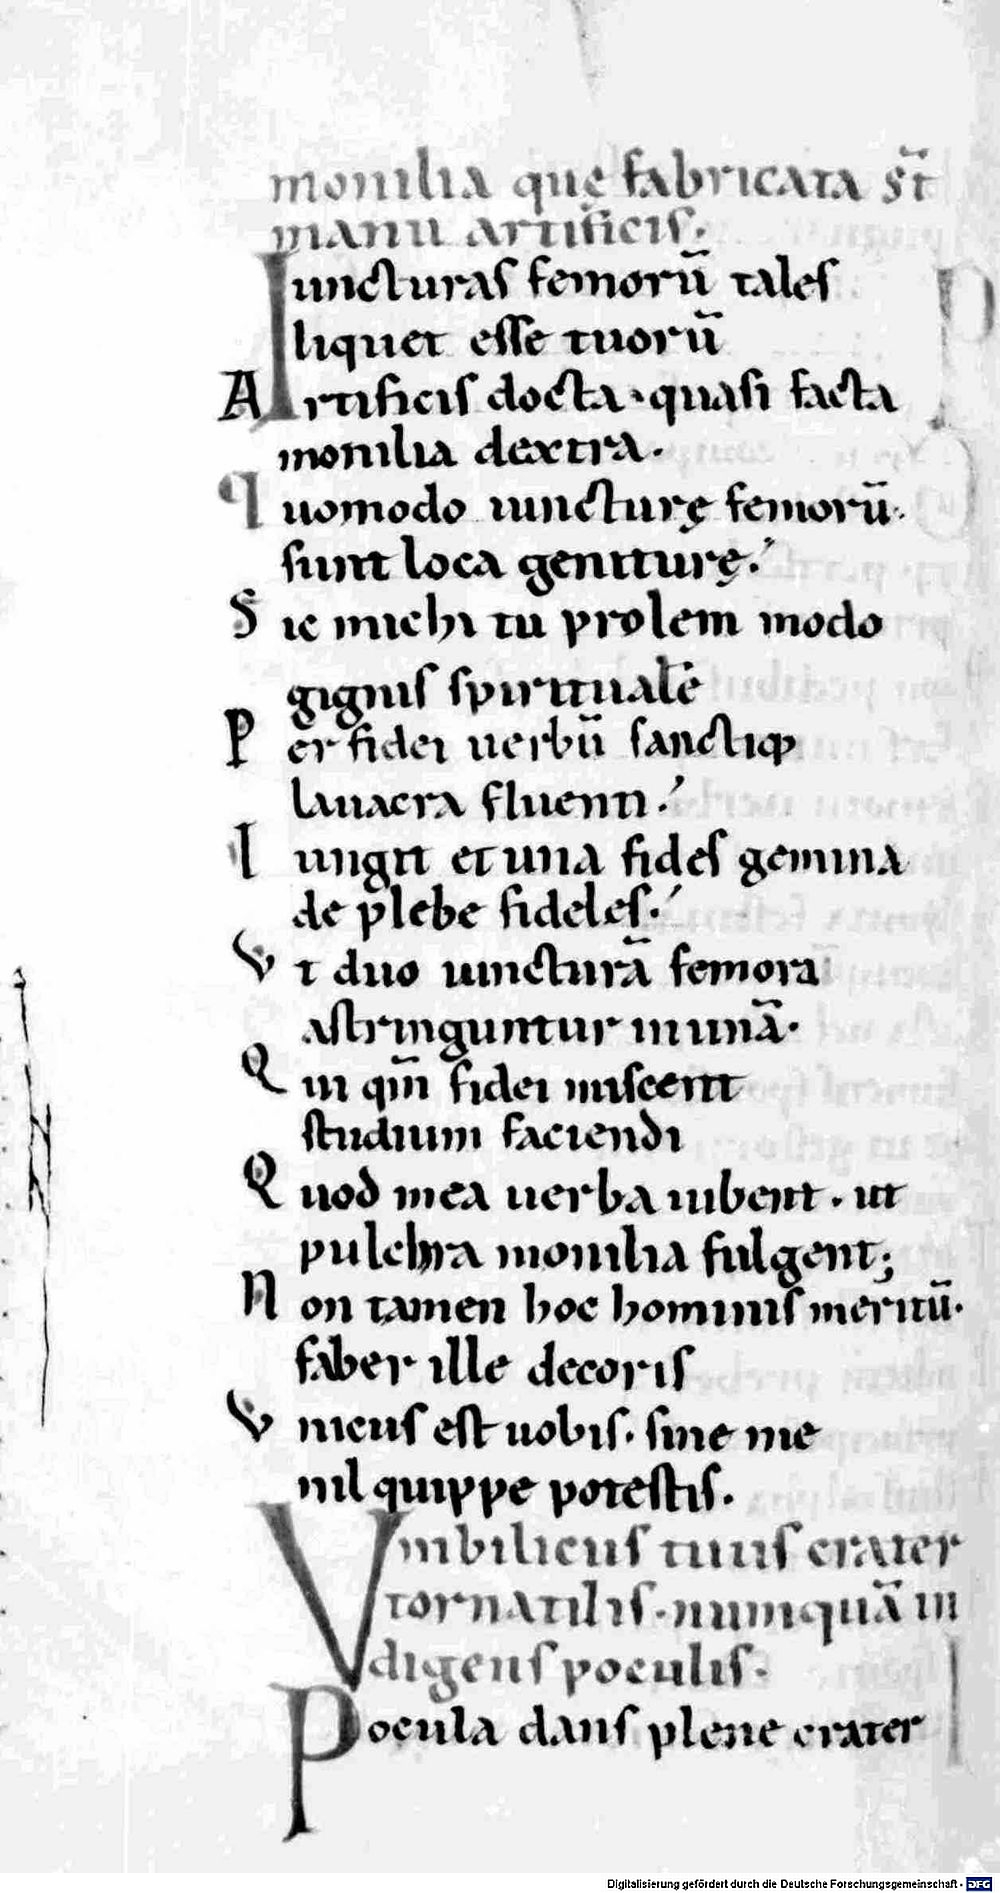 monilia quę fabricata s̄t
manu artificis.
Iuncturas femorū tales
liquet esse tuorū
Artificis docta· quasi facta
monilia dextra.
Quomodo iuncturę femorū.
sunt loca geniturę.
Sic michi tu prolem modo
gignis spiritualē
Per fidei uerbū sanctiq;
lauacra fluenti.
Iungit et una fides gemina
de plebe fideles.
Vt duo iuncturā femora
astringuntur in unā.
Qui qm̄ fidei miscent
studium faciendi
Quod mea uerba iubent. ut
pulchra monilia fulgent;
Non tamen hoc hominis meritū.
faber ille decoris
Vnicus est uobis. sine me
nil quippe potestis.
Vmbilicus tuus crater
tornatilis. numquā in
digens poculis.
Pocula dans plene crater
Digitalisierung gefördert durch die Deutsche Forschungsgemeinschaft - DFG